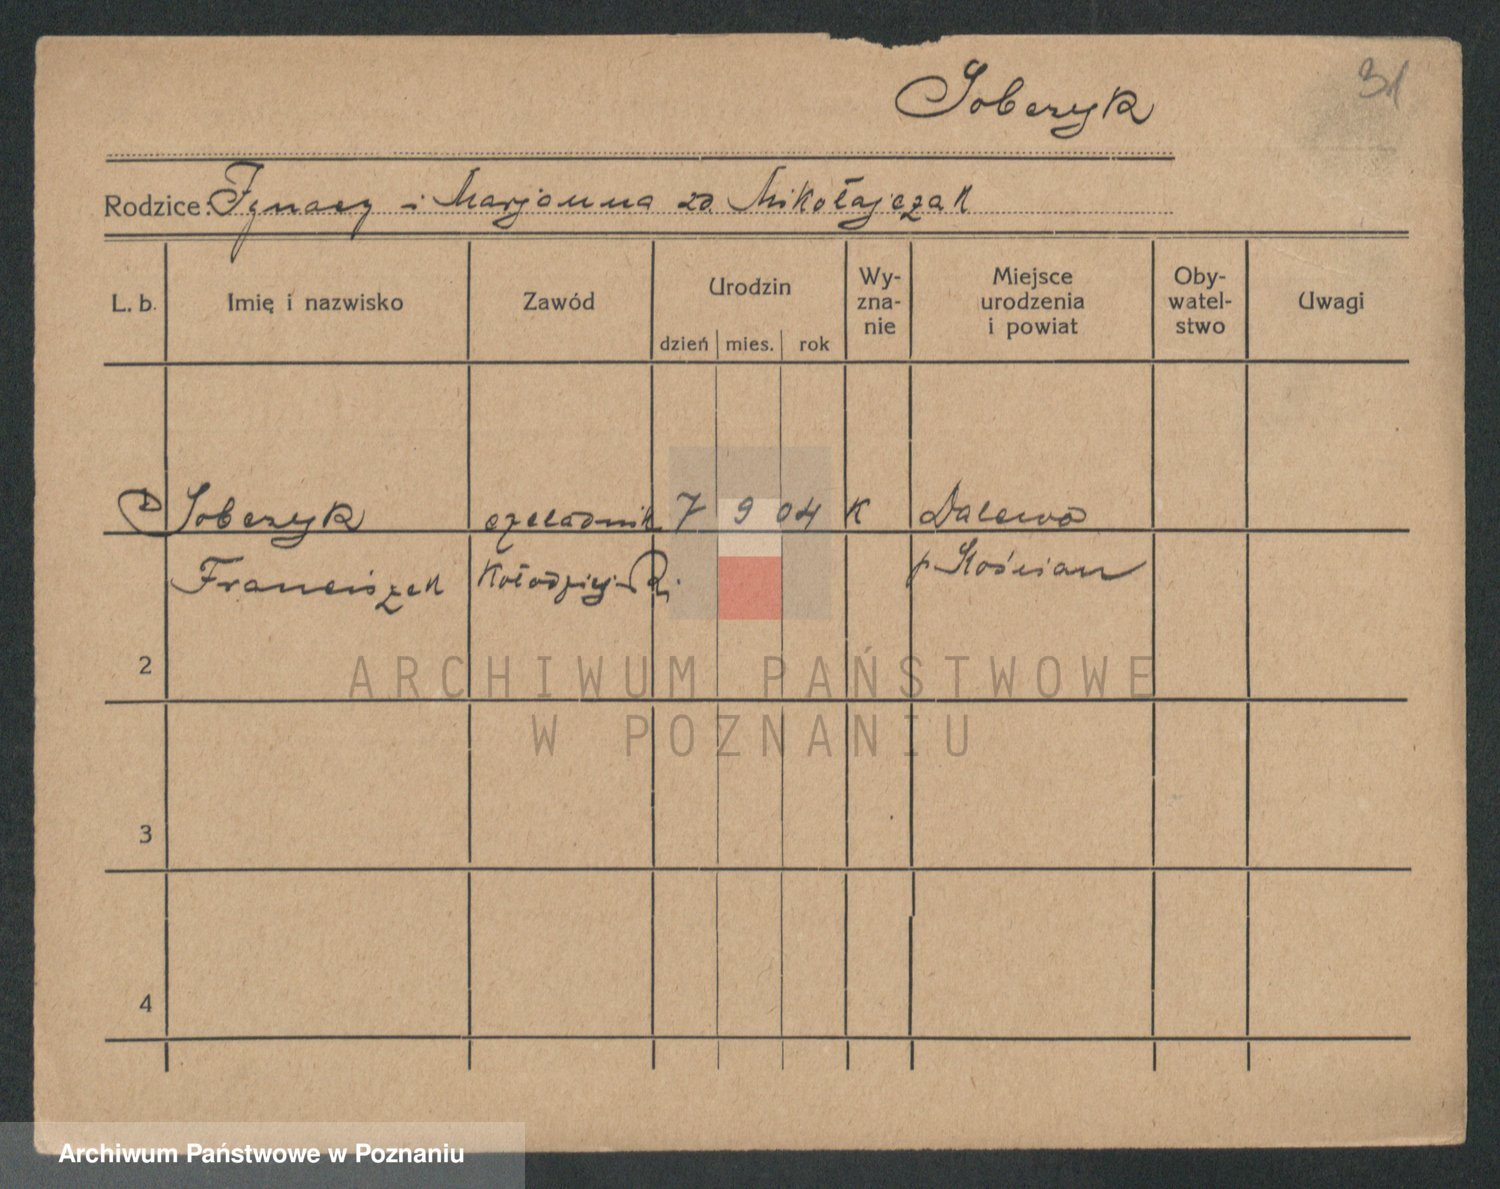 31
Sobczyk
Rodzice: Ignacy i Marjanna zd. Mikołajczak
L. b. Imię i nazwisko Zawód Urodzin dzień mies. rok Wy-zna-nie Miejsce urodzenia i powiat Oby-watel-stwo Uwagi
Sobczyk czeladnik 7 9 04 K Dalewo
Franciszek Kołodziej. p. Kościan
2
ARCHIWUM PAŃSTWOWE
W POZNANIU
3
4
Archiwum Państwowe w Poznaniu